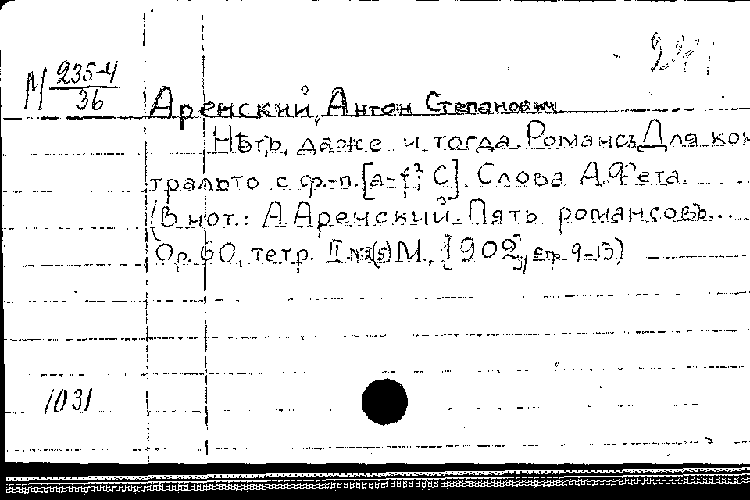 М 235-4
36
Аренский, Антон Степанович
Нѣтъ, даже и тогда. Романсъ. Для кон
тральто с ф.-п. [a-f²; C]. Слова А. Фета.
(В нот.: А. Аренский. Пять романсовъ...
Ор. 60, тетр. II №(5) М., [1902], стр. 9-13)
1031